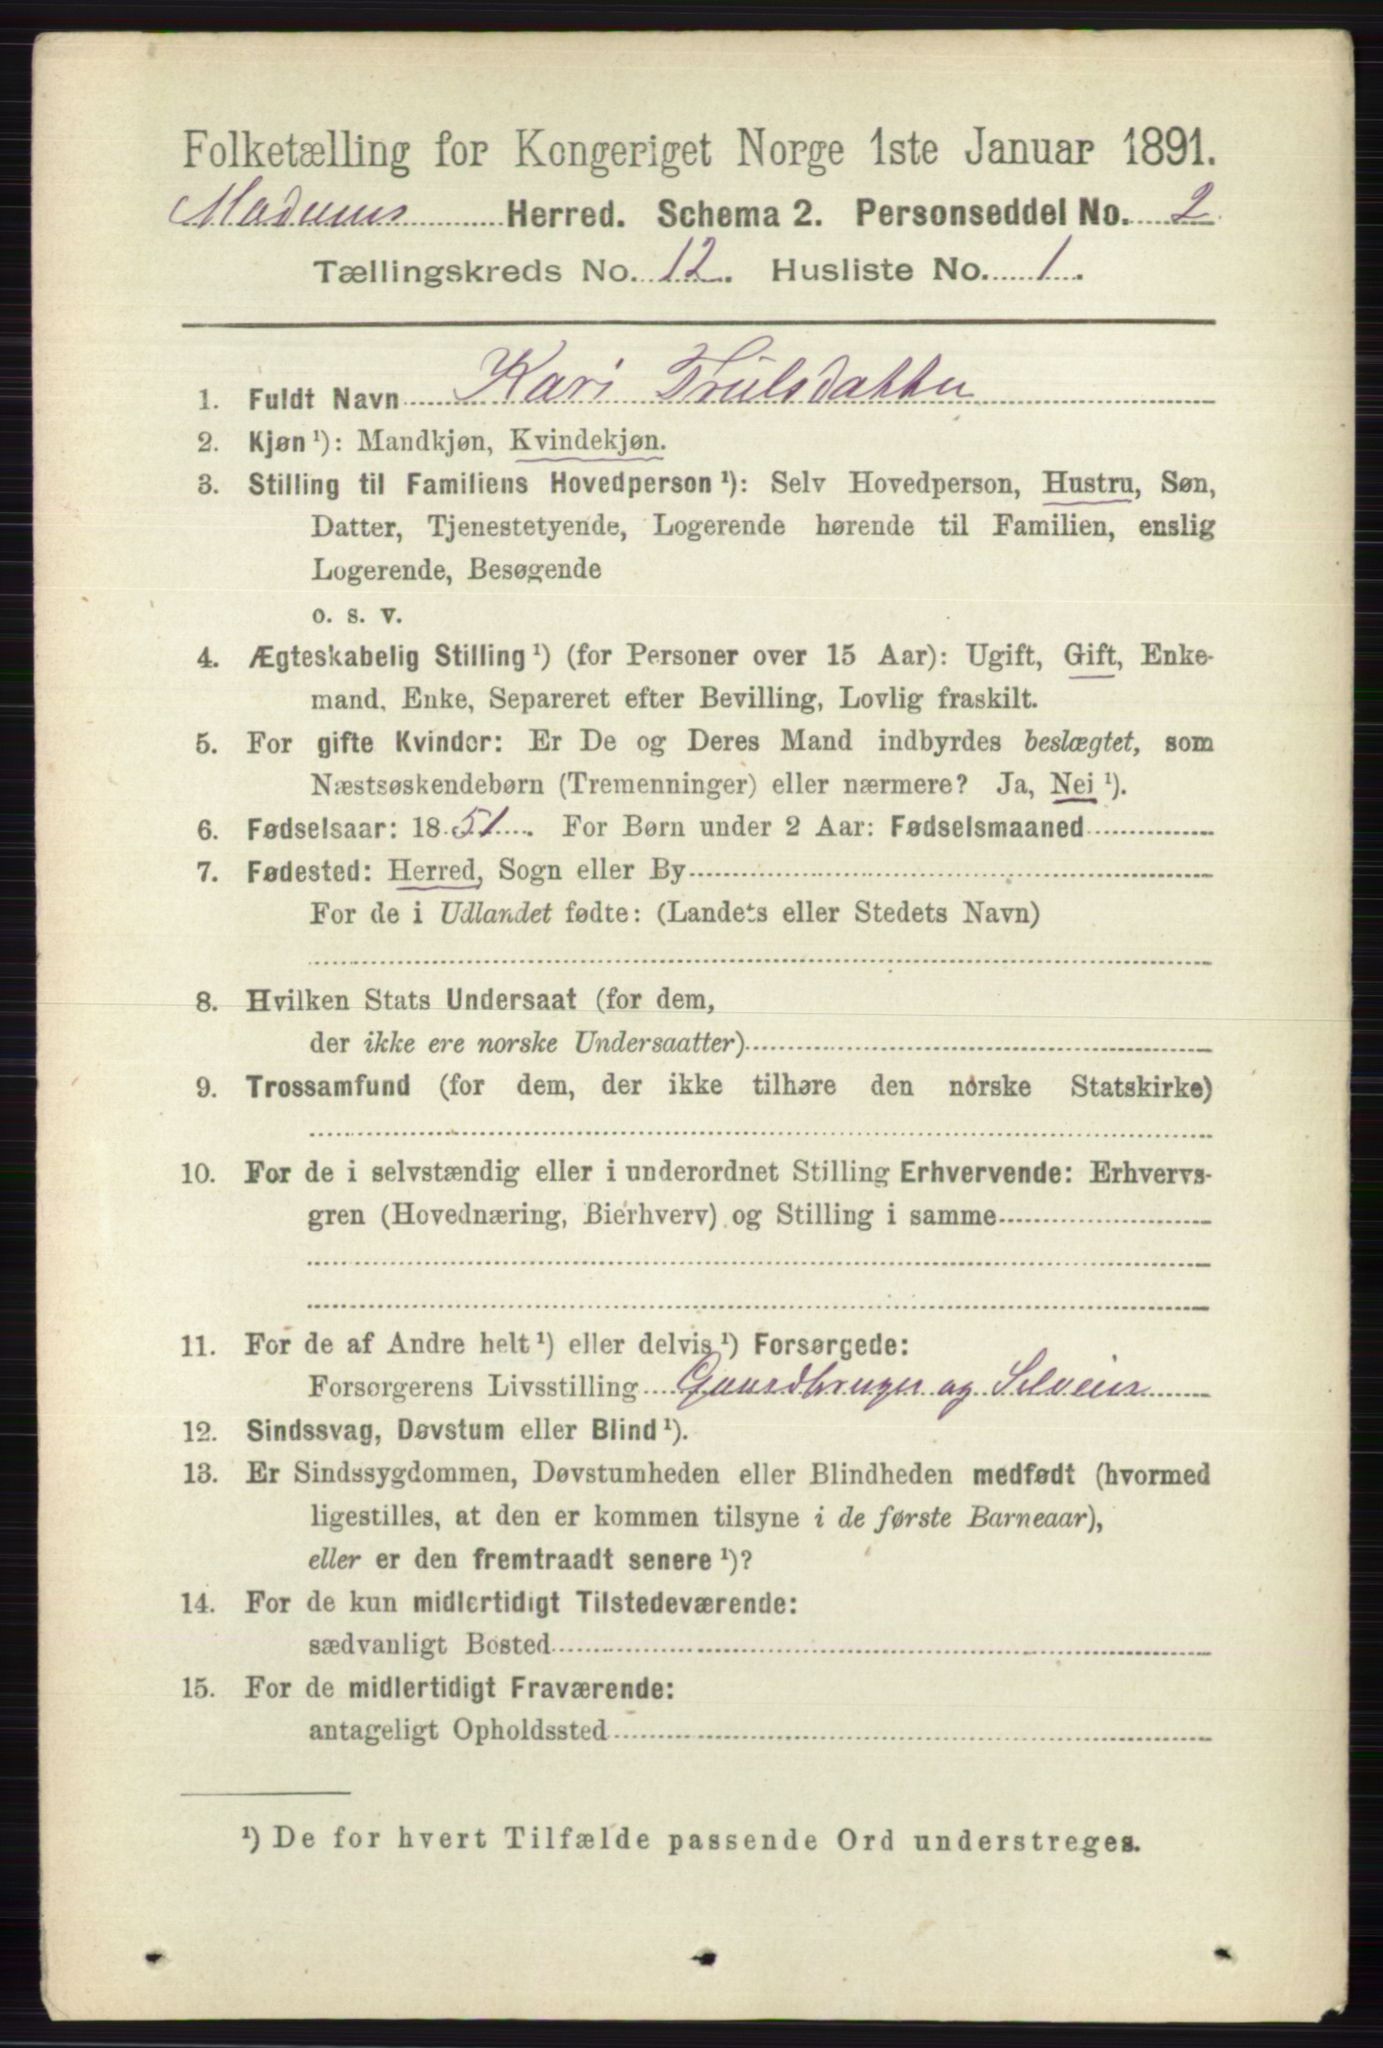 Folketælling for Kongeriget Norge 1ste Januar 1891.
Modums Herred. Schema 2. Personseddel No. 2
Tællingskreds No. 12. Husliste No. 1.
1. Fuldt Navn Kari Trulsdatter
2. Kjøn ¹): Mandkjøn, Kvindekjøn.
3. Stilling til Familiens Hovedperson ¹): Selv Hovedperson, Hustru, Søn,
Datter, Tjenestetyende, Logerende hørende til Familien, enslig
Logerende, Besøgende
o. s. v.
4. Ægteskabelig Stilling ¹) (for Personer over 15 Aar): Ugift, Gift, Enke-
mand, Enke, Separeret efter Bevilling, Lovlig fraskilt.
5. For gifte Kvinder: Er De og Deres Mand indbyrdes beslægtet, som
Næstsøskendebørn (Tremenninger) eller nærmere? Ja, Nei ¹).
6. Fødselsaar: 1851. For Børn under 2 Aar: Fødselsmaaned
7. Fødested: Herred, Sogn eller By
For de i Udlandet fødte: (Landets eller Stedets Navn)
8. Hvilken Stats Undersaat (for dem,
der ikke ere norske Undersaatter)
9. Trossamfund (for dem, der ikke tilhøre den norske Statskirke)
10. For de i selvstændig eller i underordnet Stilling Erhvervende: Erhvervs-
gren (Hovednæring, Bierhverv) og Stilling i samme
11. For de af Andre helt ¹) eller delvis ¹) Forsørgede:
Forsørgerens Livsstilling Gaardbruger og Selveier
12. Sindssvag, Døvstum eller Blind ¹).
13. Er Sindssygdommen, Døvstumheden eller Blindheden medfødt (hvormed
ligestilles, at den er kommen tilsyne i de første Barneaar),
eller er den fremtraadt senere ¹)?
14. For de kun midlertidigt Tilstedeværende:
sædvanligt Bosted
15. For de midlertidigt Fraværende:
antageligt Opholdssted
¹) De for hvert Tilfælde passende Ord understreges.